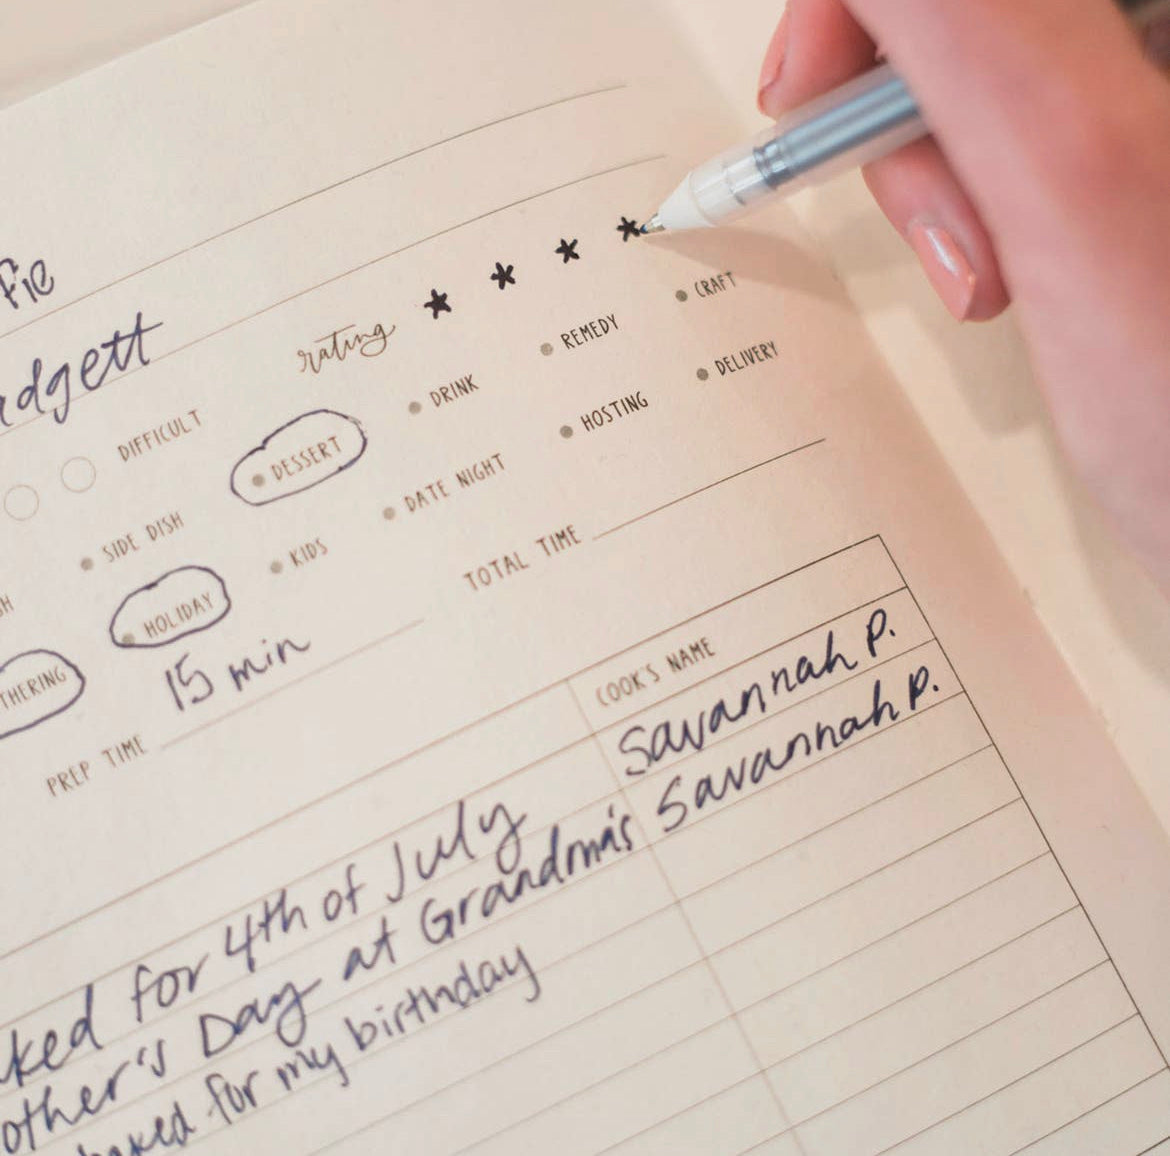 fie
dgett
rating * * * *
DIFFICULT DESSERT DRINK REMEDY CRAFT
SIDE DISH KIDS DATE NIGHT HOSTING DELIVERY
THERING HOLIDAY
PREP TIME 15 min TOTAL TIME
COOK'S NAME
ked for 4th of July Savannah P.
other's Day at Grandma's Savannah P.
baked for my birthday